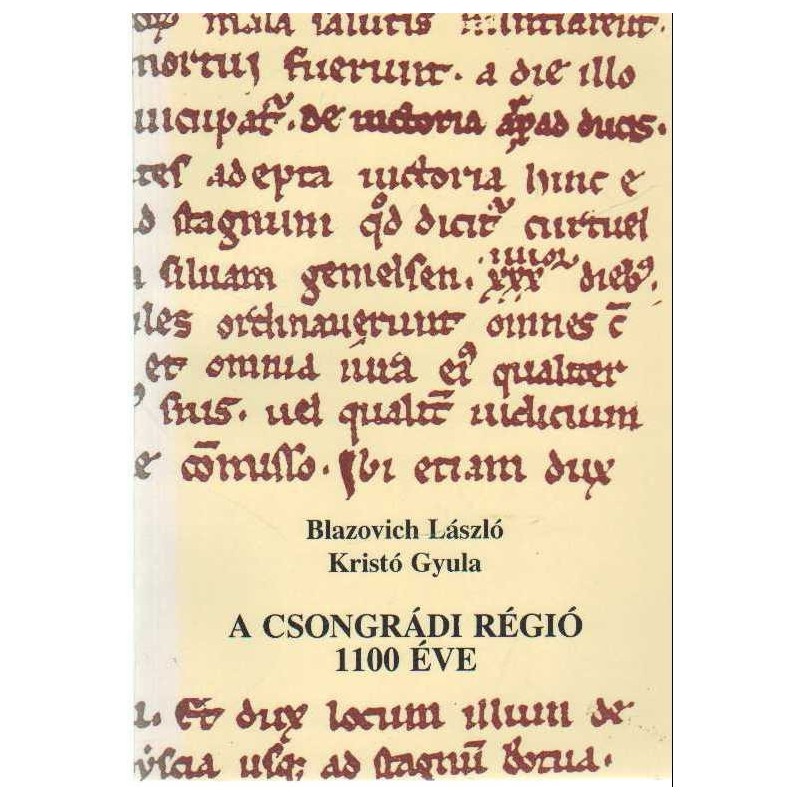 mala salutis nuntiarent.
mortui fuerunt. a die illo
nuicupatr̃. de uictoria arpad ducis.
tes adepta uictoria hinc e
ad stagnum qd̊ dicitr̃ curtuel
a siluam gemelsen. XXX dieb9
iles ordinauerunt omnes c̃
et omnia iura ei9 qualiter
suis. uel qualit̃ iudicium
e com̃isso. Ibi etiam dux
Blazovich László
Kristó Gyula
A CSONGRÁDI RÉGIÓ
1100 ÉVE
Et dux locum illum de
yscia usq; ad stagnũ botua.